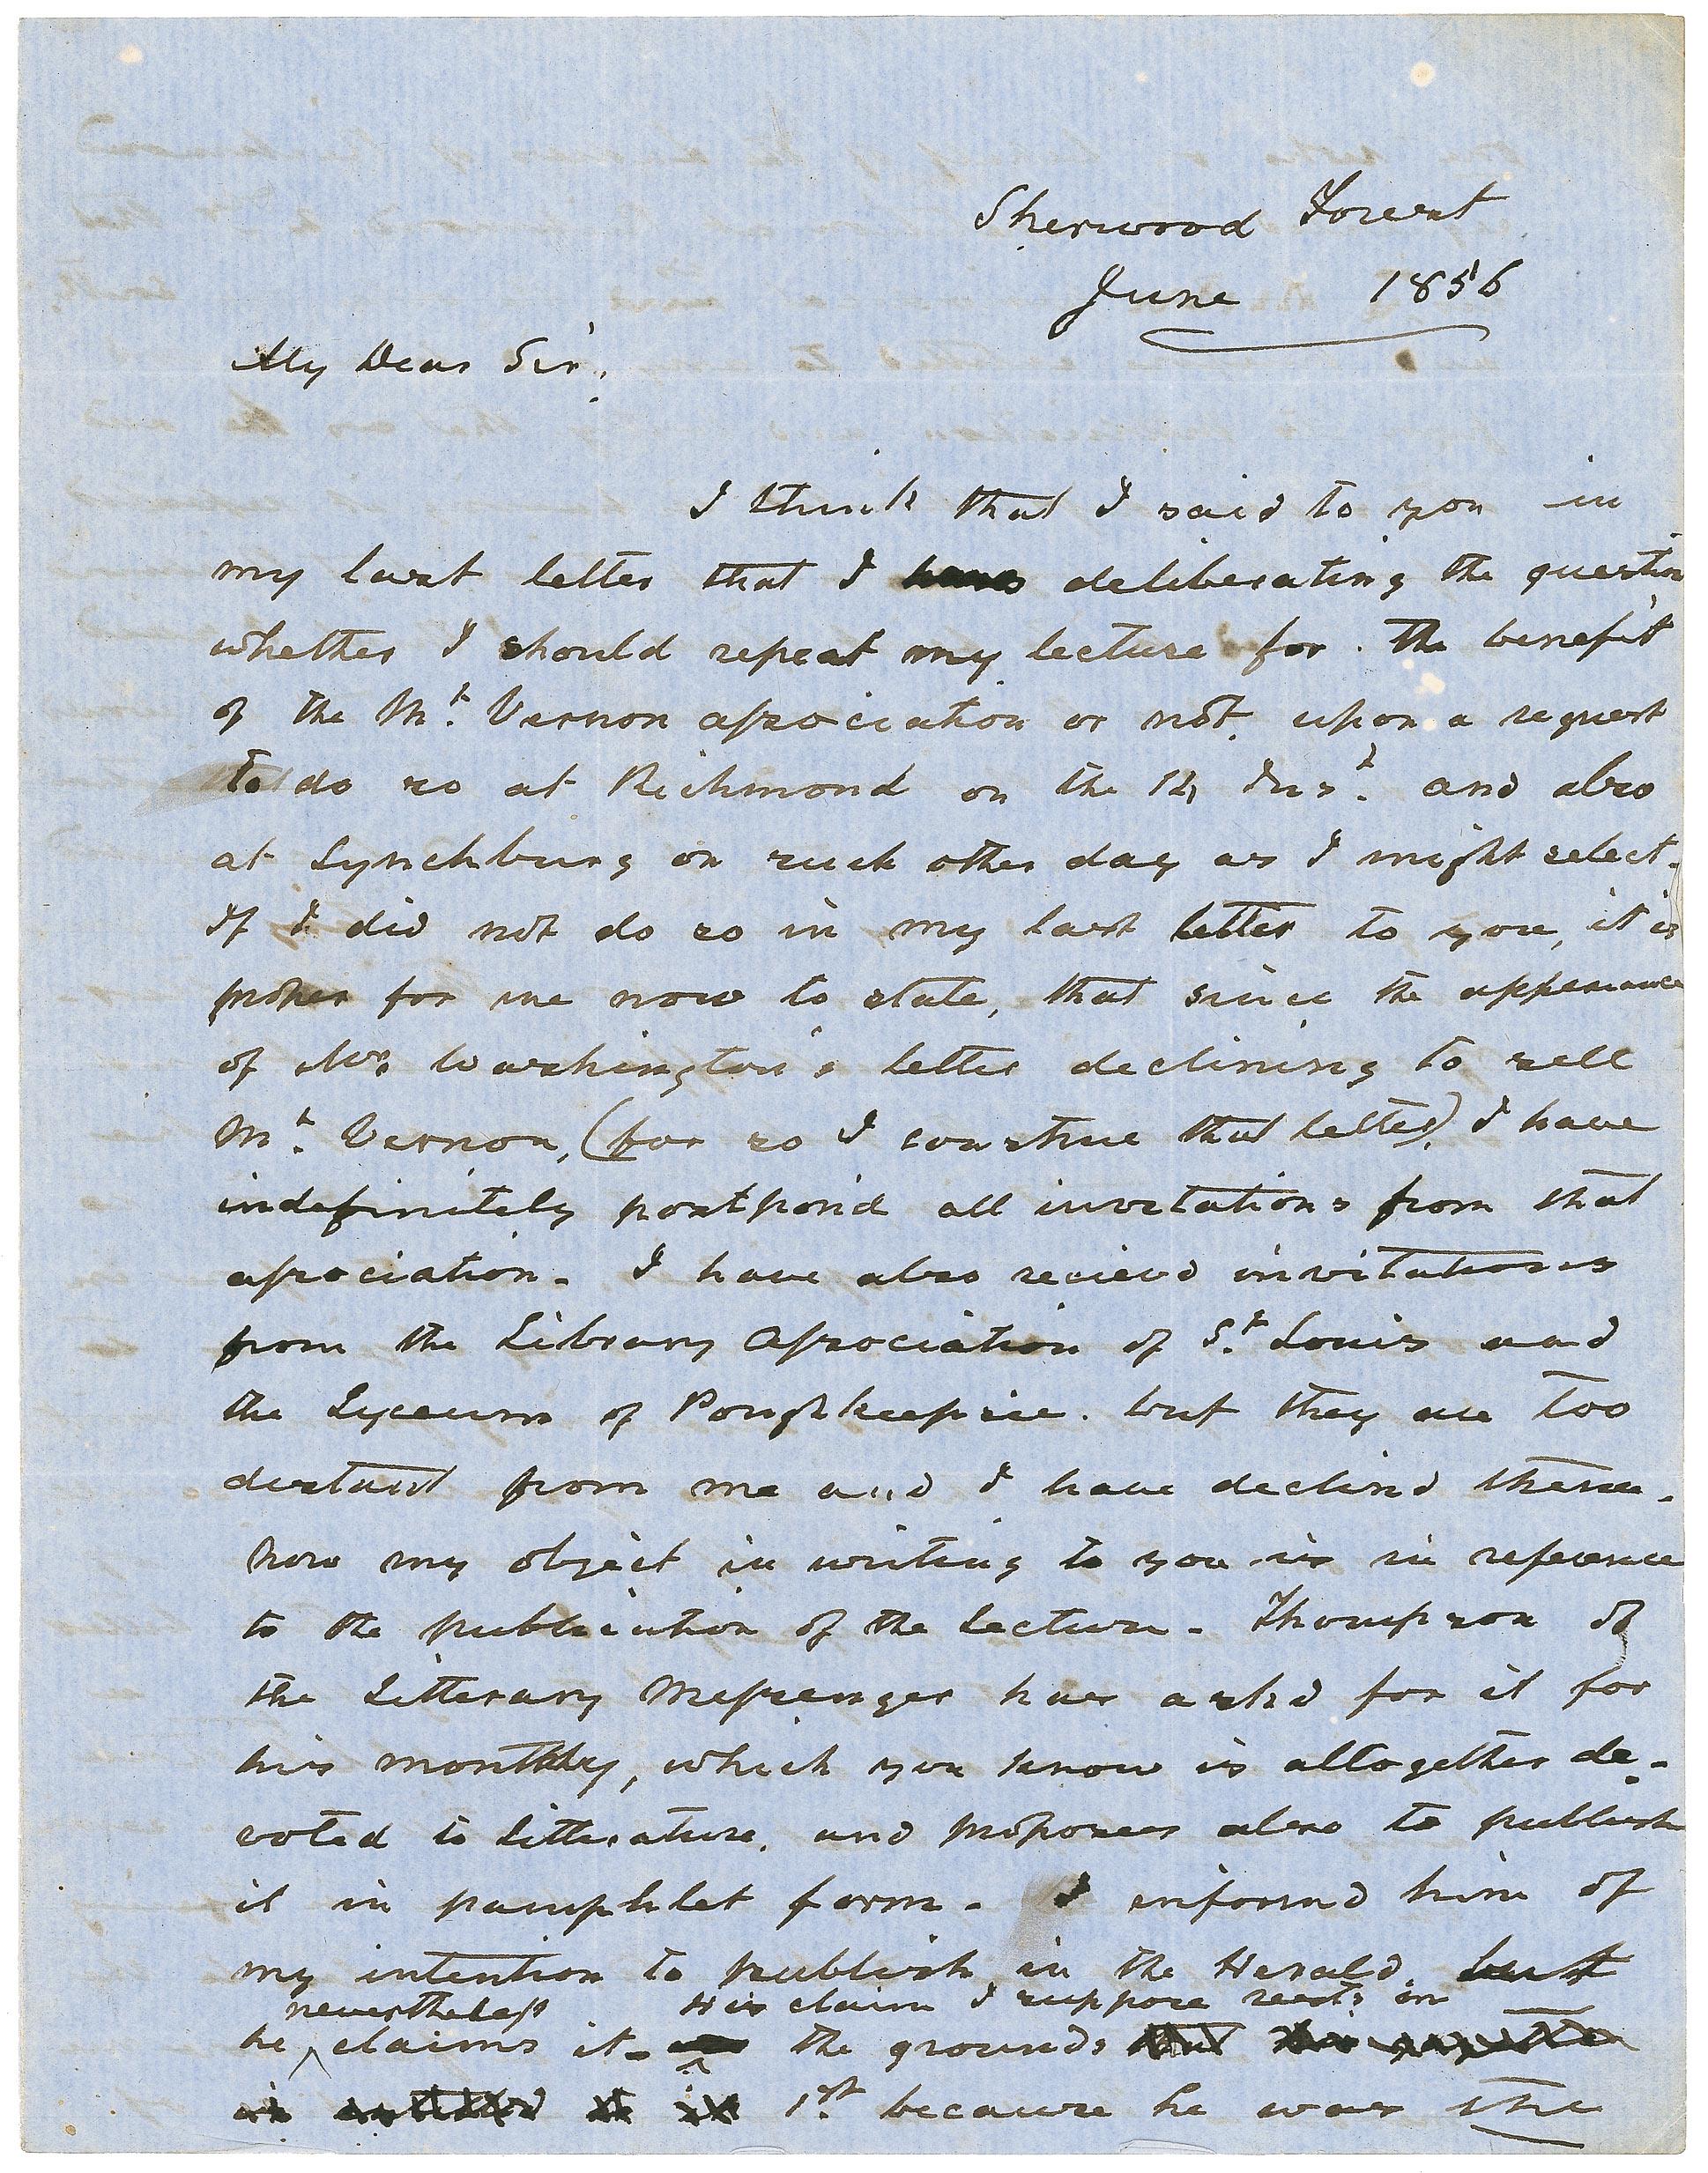 Sherwood Forest
June 1856
My Dear Sir:
I think that I said to you in
my last letter that I deliberating the question
whether I should repeat my lecture for the benefit
of the Mt. Vernon association or not, upon a request
to do so at Richmond on the 12 Inst. and also
at Lynchburg on such other day as I might select.
If I did not do so in my last letter to you, it is
proper for me now to state, that since the appearance
of Mr. Washington's letter declining to sell
Mt. Vernon, (for so I construe that letter), I have
indefinitely postpon'd all invitations from that
association. I have also recieved invitations
from the Library Association of St. Louis and
the Lyceum of Poughkeepsie. but they are too
distant from me and I have declin'd them.
Now my object in writing to you is in reference
to the publication of the Lecture. Thompson of
the Litterary Messenger has ask'd for it for
his monthly, which you know is altogether de-
voted to litterature, and proposes also to publish
it in pamphlet form. I inform'd him of
my intention to publish in the Herald, but
nevertheless His claim I suppose rests on
he claims it. the grounds
1st. because he was the